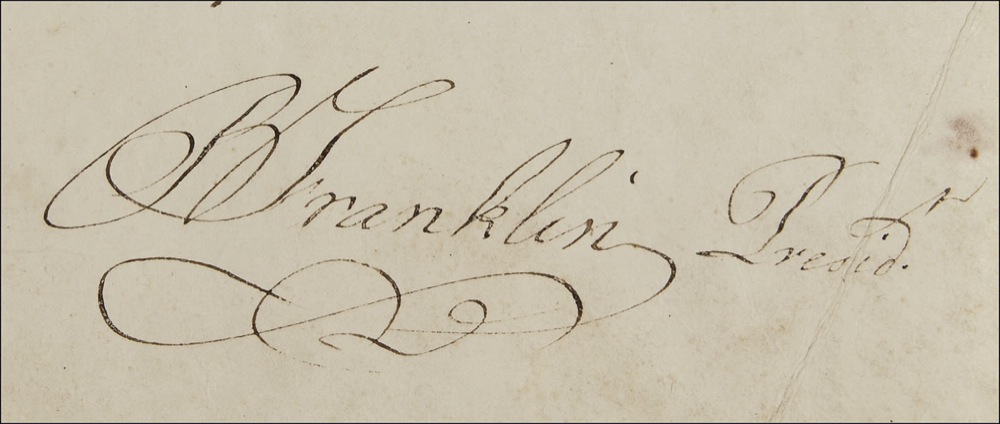 B Franklin Presid.t